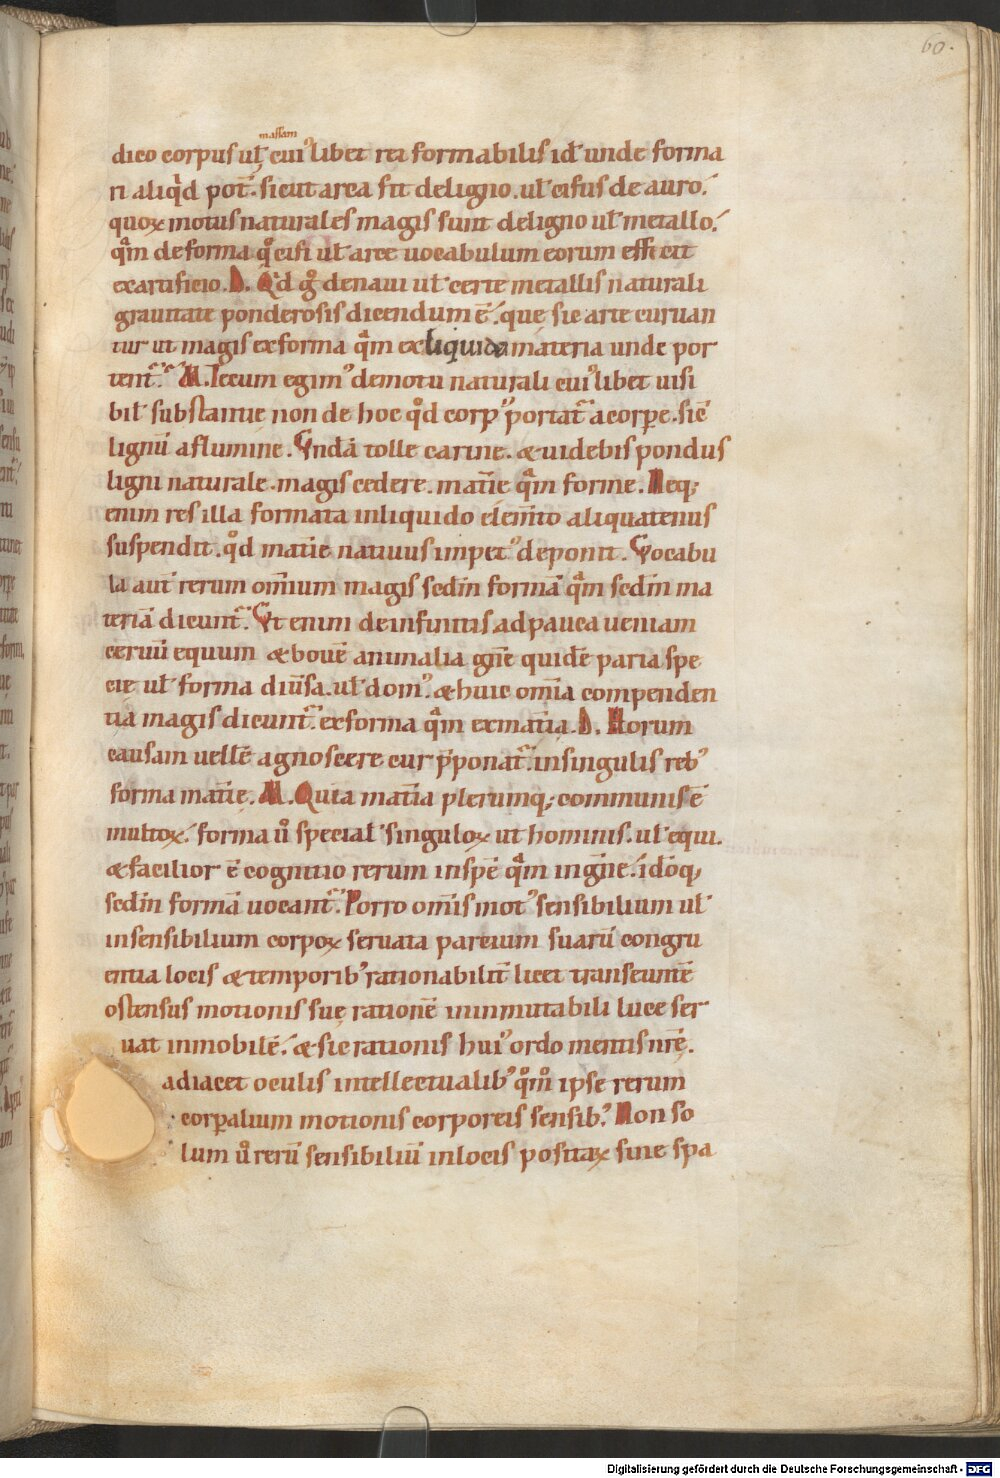 60.
massam
dico corpus ul̄ cuiꝰlibet rei formabilis id ÷ unde forma
ri aliqͥd pot̄. sicut arca fit de ligno. ul̄ cifus de auro.
quoꝝ motus naturales magis sunt de ligno ul̄ metallo.
qͣm de forma qͦ cifi ul̄ arcę uocabulum eorum efficit
ex artificio. D. Qͥd gͦ de naui ul̄ certe metallis naturali
grauitate ponderosis dicendum ē. quę sic arte curuan
tur ut magis ex forma qͣm ex liquida materia unde por
tent᷑. M. Tecum egimꝰ de motu naturali cuiꝰlibet uisi
bil̄ substantię non de hoc qͦd corpꝰ portat᷑ a corpe. sic̄
lignū a flumine. Undā tolle carinę. & uidebis pondus
ligni naturale. magis cedere. matię qͣm formę. Neq;
enim res illa formata in liquido elem̄to aliquatenus
suspendit. qͦd matię natiuus impetꝰ deponit. Vocabu
la aut̄ rerum om̄ium magis sed̄m formā qͣm sed̄m ma
teriā dicunt᷑. Ut enim de infinitis ad pauca ueniam
ceruū equum & bouē animalia gn̄e quidē paria spe
cię ul̄ forma diūsa. ul̄ domꝰ. & huic om̄ia compenden
tia magis dicunt᷑. ex forma qͣm ex matia. D. Horum
causam uellē agnoscere cur p̄ponat᷑. in singulis rebꝰ
forma matię. M. Quia matia plerumq; communis ē
multoꝝ. forma ū special̄ singuloꝝ ut hominis. ul̄ equi.
& facilior ē cognitio rerum in spē qͣm in gn̄e. idōq;
sed̄m formā uocant᷑. Porro om̄is motꝰ sensibilium ul̄
insensibilium corpoꝝ seruata partium suarū congru
entia locis & temporibꝰ rationabilit̄ licet transeunt̄
ostensus motionis suę rationē inmutabili luce ser
uat inmobilē. & sic rationis huiꝰ ordo mentis nrę̄.
adiacet oculis intellectualibꝰ qͦmͦ ipse rerum
corpalium motionis corporeis sensibꝰ. Non so
lum ū rerū sensibiliū in locis positaꝝ siue spa
Digitalisierung gefördert durch die Deutsche Forschungsgemeinschaft - DFG